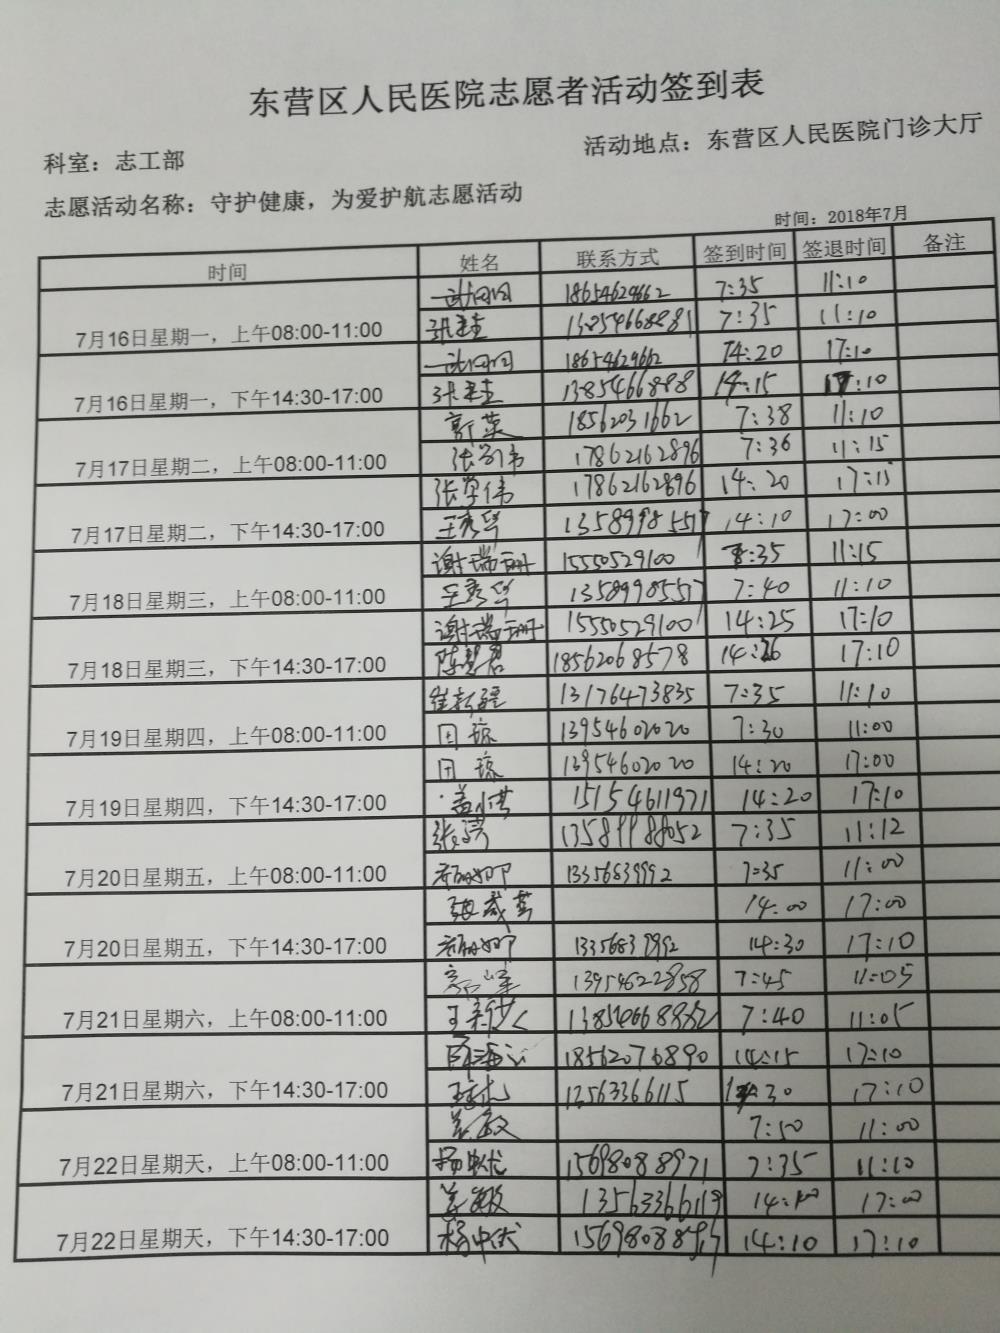 东营区人民医院志愿者活动签到表
科室：志工部
活动地点：东营区人民医院门诊大厅
志愿活动名称：守护健康，为爱护航志愿活动
时间：2018年7月
时间 姓名 联系方式 签到时间 签退时间 备注
7月16日星期一，上午08:00-11:00
18654629662 7:35 11:10
13854668881 7:35 11:10
7月16日星期一，下午14:30-17:00
18654629662 14:20 17:10
1385466888 14:15 17:10
7月17日星期二，上午08:00-11:00
郭英 18562031662 7:38 11:10
张学伟 17862162896 7:36 11:15
7月17日星期二，下午14:30-17:00
张学伟 17862162896 14:20 17:15
王秀华 13589985517 14:10 17:00
7月18日星期三，上午08:00-11:00
谢瑞珊 15550529100 7:35 11:15
王秀华 13589985517 7:40 11:10
7月18日星期三，下午14:30-17:00
谢瑞珊 15550529100 14:25 17:10
陈慧君 18562068578 14:26 17:10
7月19日星期四，上午08:00-11:00
崔新疆 13176473835 7:35 11:10
田琼 13954602020 7:30 11:00
7月19日星期四，下午14:30-17:00
田琼 13954602020 14:20 17:00
盖小琪 15154611971 14:20 17:10
7月20日星期五，上午08:00-11:00
13589988052 7:35 11:12
13356839992 7:35 11:00
7月20日星期五，下午14:30-17:00
14:00 17:00
13356839992 14:30 17:10
7月21日星期六，上午08:00-11:00
13954622858 7:45 11:05
7:40 11:05
7月21日星期六，下午14:30-17:00
18562076890 14:15 17:10
12563366115 14:30 17:10
7月22日星期天，上午08:00-11:00
姜敏 7:50 11:00
杨中伏 15698088971 7:35 11:10
7月22日星期天，下午14:30-17:00
姜敏 13563366119 17:00
杨中伏 15698088971 14:10 17:10